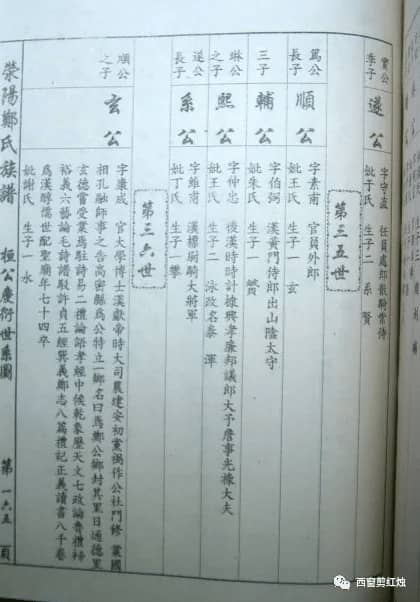 實公
季子
遂公
字守溫 任員處郎散騎常侍
妣于氏 生子二 系 賢
第三五世
篤公
長子
順公
字素南 官員外郎
妣王氏 生子一 玄
三子
輔公
字伯弼 漢黃門侍郎出山陰太守
妣朱氏 生子一
琳公
之子
熙公
字仲忠 後漢時時計據興孝廉邦議郎大子詹事光祿大夫
妣王氏 生子二 泳改名泰 渾
遂公
長子
系公
字維甫 漢標尉騎大將軍
妣丁氏 生子一 攀
第三六世
順公
之子
玄公
字康成 官大學博士漢獻帝時大司農建安初黨禍作公社門修 業國
相孔融師事之告高密縣為公特立一鄉名曰馬鄭公鄉封其里曰通德里
玄德當受業馬駐詩易二禮論語孝經中候乾象歷天文七政論魯禮禘
裕義六藝論毛詩譜駁許貞五經異義鄭志八篇禮記正義讀書八千卷
為漢醇儒世配聖廟年七十四卒
妣謝氏 生子一 永
滎陽鄭氏族譜 桓公慶衍世系圖 第一六五頁
西窗剪红烛